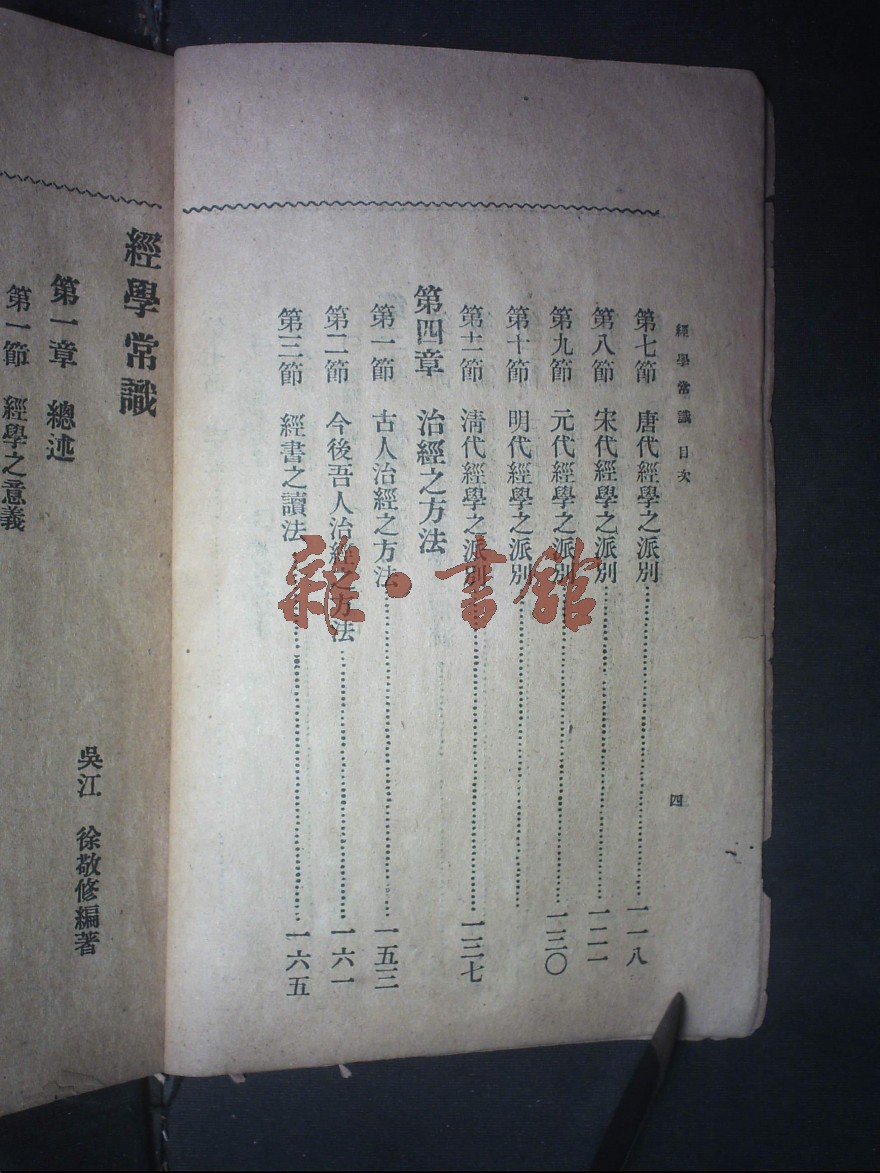 經學常識 目次
四
第七節 唐代經學之派別……一一八
第八節 宋代經學之派別……一二一
第九節 元代經學之派別……一三〇
第十節 明代經學之派別……
第十一節 清代經學之派別……一三七
第四章 治經之方法
第一節 古人治經之方法……一五三
第二節 今後吾人治經之方法……一六一
第三節 經書之讀法……一六五
雜·書館
經學常識
吳江 徐敬修編著
第一章 總述
第一節 經學之意義